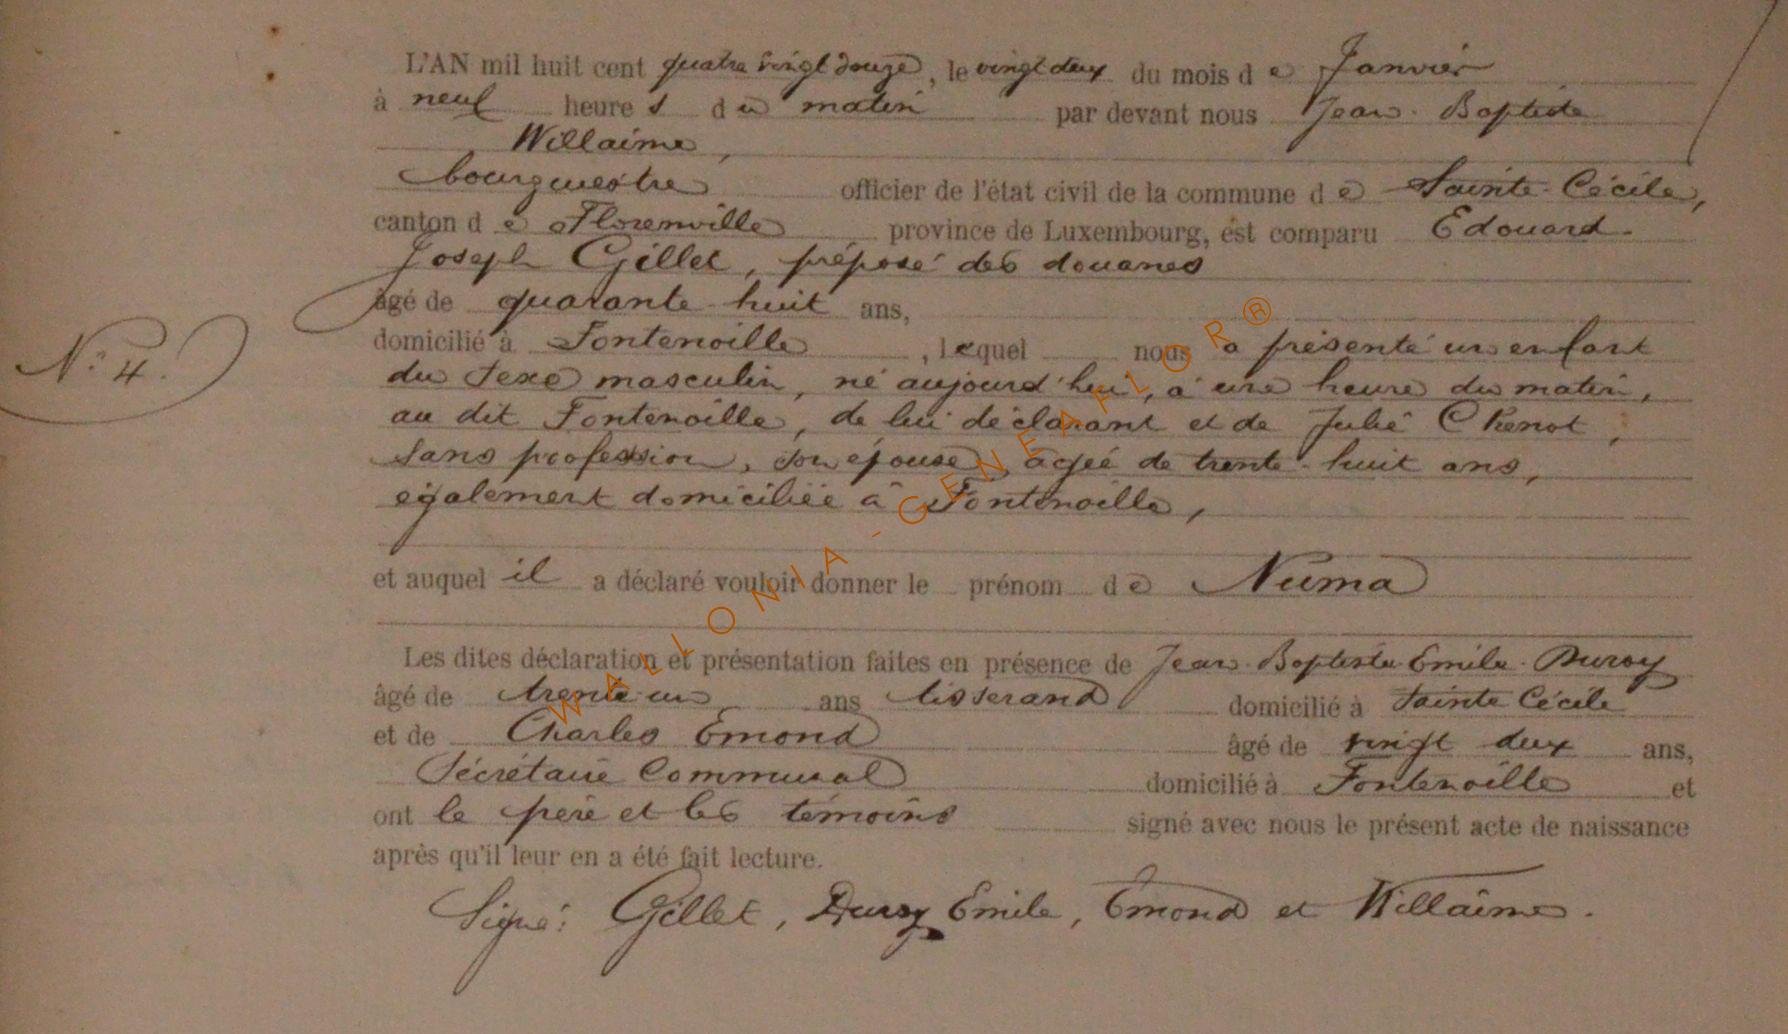 L'AN mil huit cent quatre vingt douze, le vingt deux du mois de Janvier
à neuf heures du matin par devant nous Jean-Baptiste
Willaime,
bourgmestre officier de l'état civil de la commune de Sainte-Cécile,
canton de Florenville province de Luxembourg, est comparu Edouard-
Joseph Gillet, préposé des douanes
âgé de quarante-huit ans,
domicilié à Fontenoille, lequel nous a présenté un enfant
N° 4.
du sexe masculin, né aujourd'hui, à une heure du matin,
au dit Fontenoille, de lui déclarant et de Julie Chenot,
sans profession, son épouse, agée de trente-huit ans,
également domiciliée à Fontenoille,
et auquel il a déclaré vouloir donner le prénom de Numa
Les dites déclaration et présentation faites en présence de Jean-Baptiste-Emile-Duroy
âgé de trente-un ans tisserand domicilié à Sainte Cécile
et de Charles Emond âgé de vingt deux ans,
Sécrétaire Communal domicilié à Fontenoille et
ont le père et les témoins signé avec nous le présent acte de naissance
après qu'il leur en a été fait lecture.
Signé: Gillet, Duroy Emile, Emond et Willaime.
WALLONIA-GENEAFLOR®